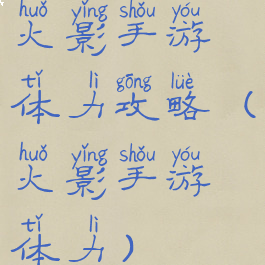 huǒ yǐng shǒu yóu
火影手游
tǐ lì gōng lüè
体力攻略（
huǒ yǐng shǒu yóu
火影手游
tǐ lì
体力）